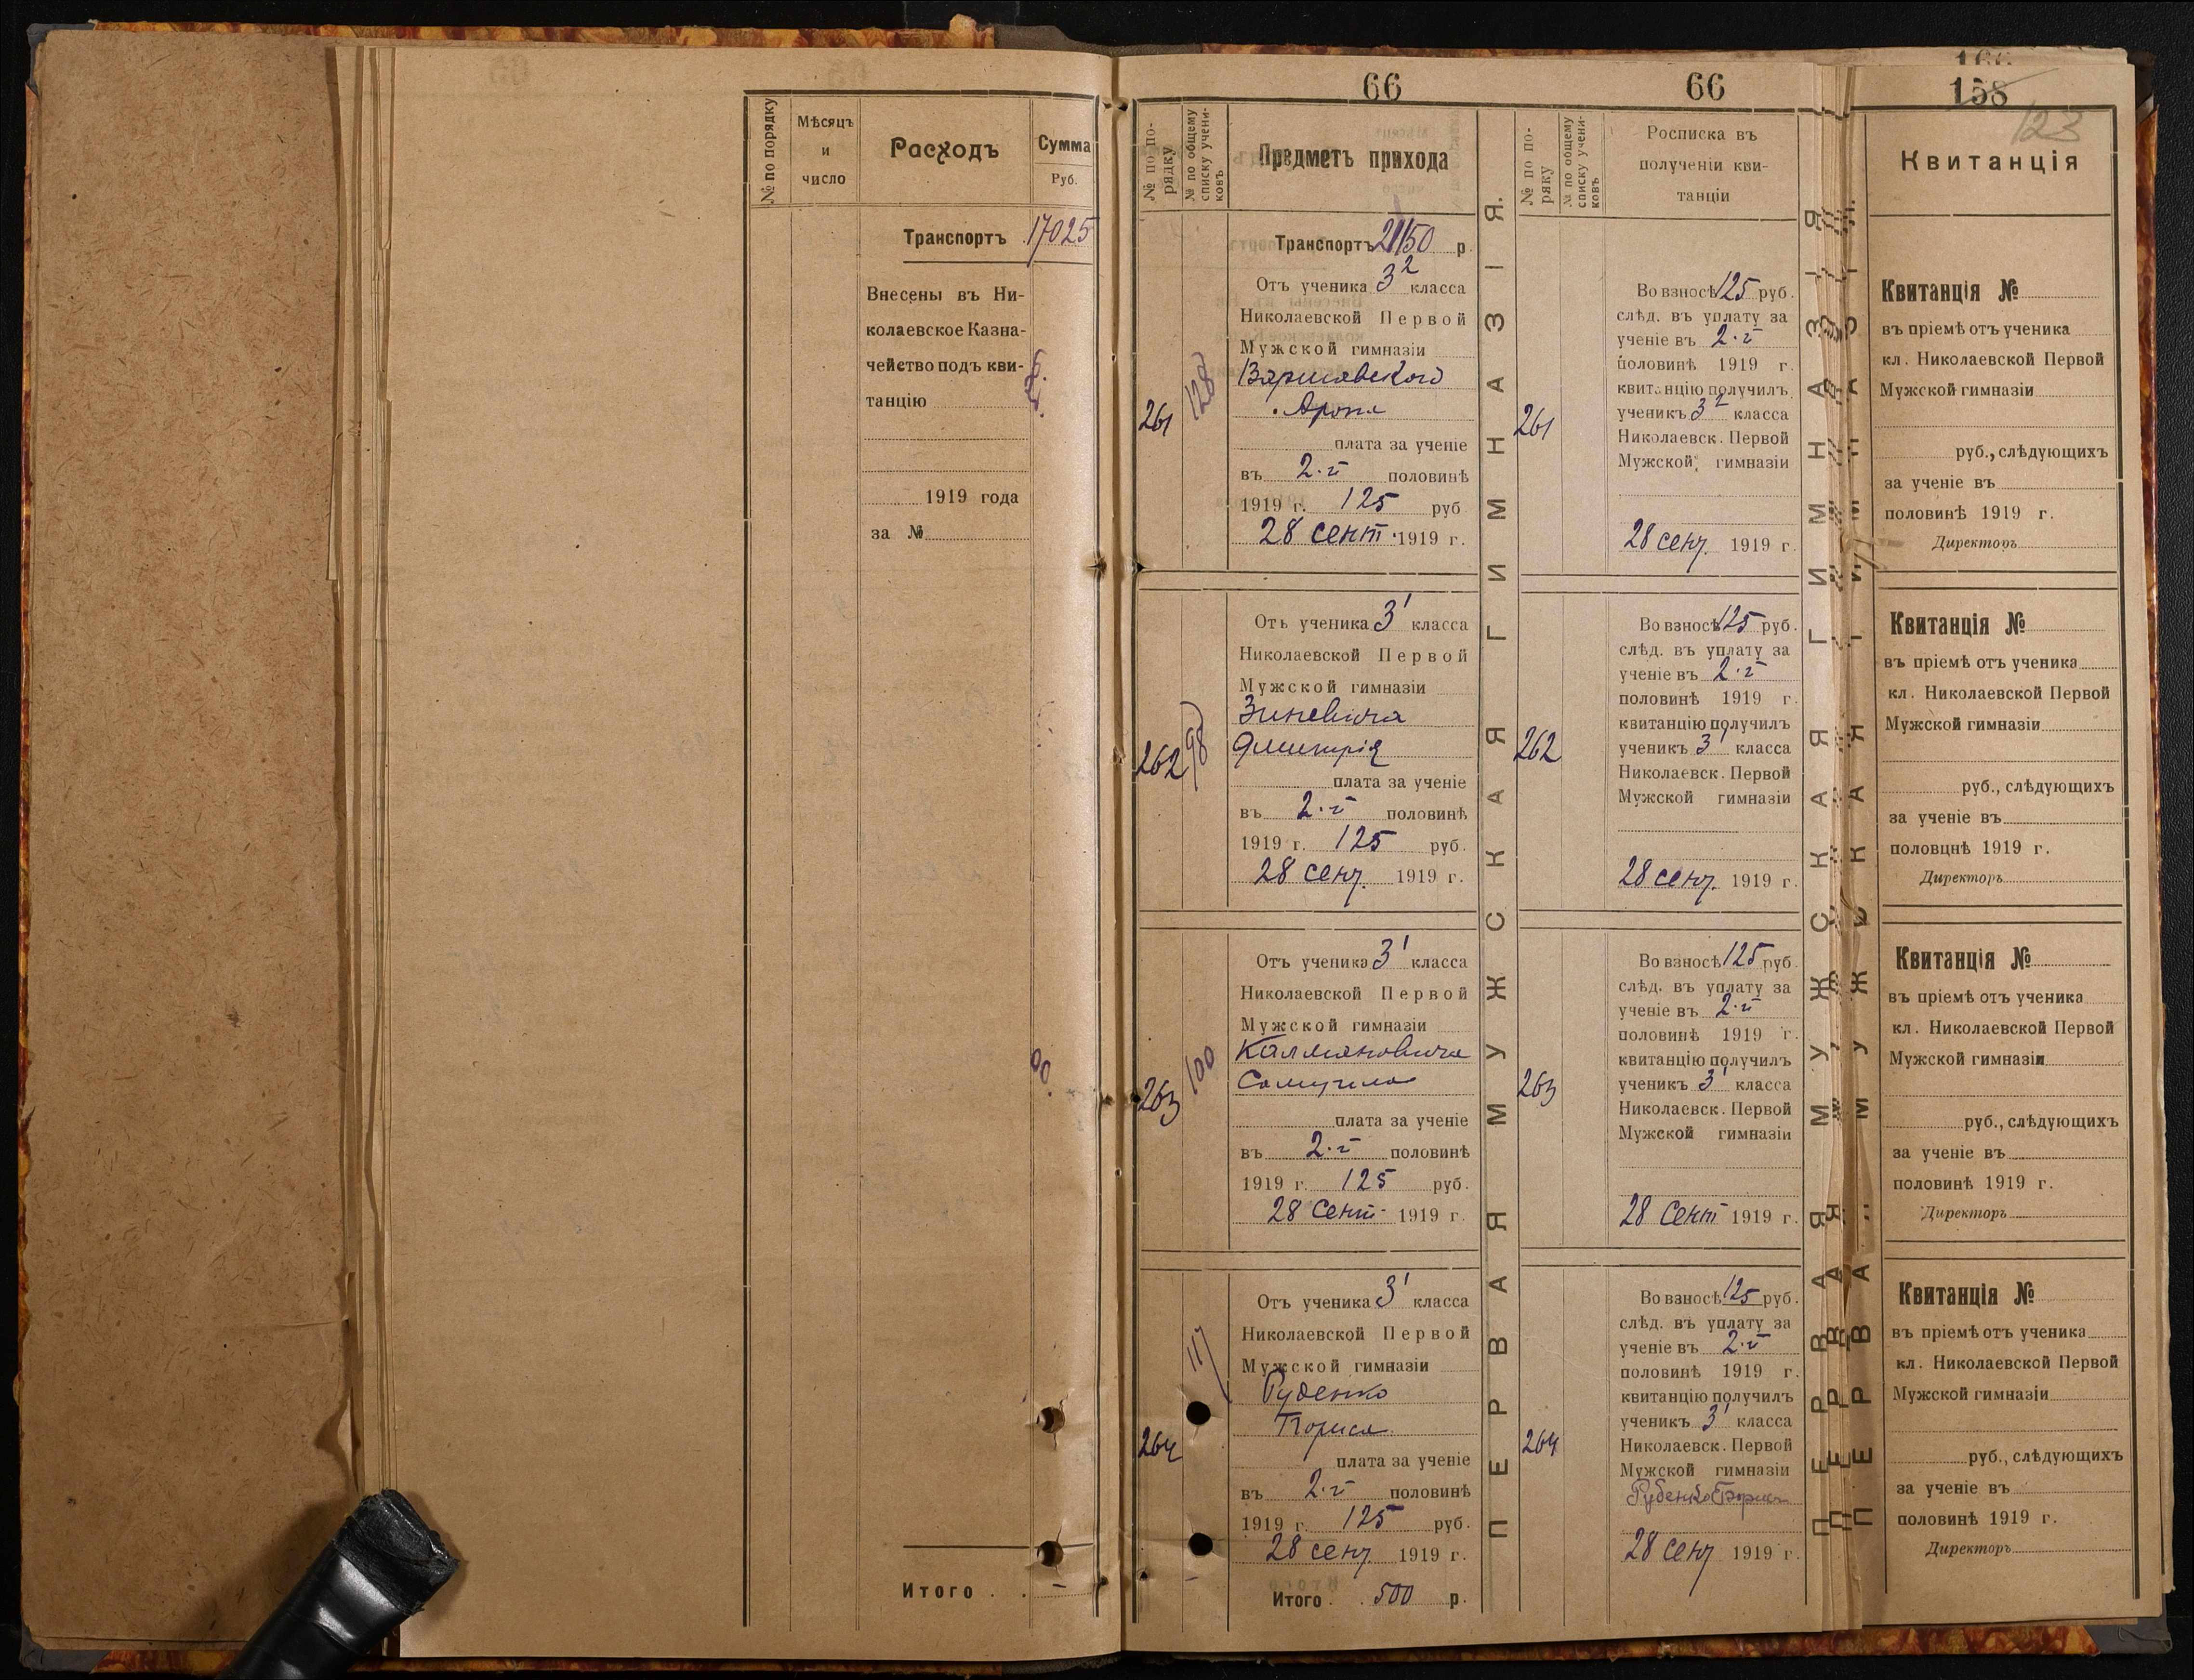 № по порядку
Мѣсяцъ
и
число
Расходъ
Сумма
Руб.
Транспортъ 17025
Внесены въ Ни-
колаевское Казна-
чейство подъ кви-
танцію
1919 года
за №
Итого . . –
66
№ по по-
рядку
№ по общему
списку учени-
ковъ
Предметъ прихода
Транспортъ 21150 р.
261
128
Отъ ученика 3² класса
Николаевской Первой
Мужской гимназіи
Варшавского
Арона
плата за ученіе
въ 2-й половинѣ
1919 г. 125 руб
28 сент. 1919 г.
262
98
Отъ ученика 3' класса
Николаевской Первой
Мужской гимназіи
Зиневича
Дмитрія
плата за ученіе
въ 2-й половинѣ
1919 г. 125 руб.
28 сент. 1919 г.
263
100
Отъ ученика 3' класса
Николаевской Первой
Мужской гимназіи
Калмановича
Самуила
плата за ученіе
въ 2-й половинѣ
1919 г. 125 руб.
28 Сент. 1919 г.
264
117
Отъ ученика 3' класса
Николаевской Первой
Мужской гимназіи
Руденко
Бориса
плата за ученіе
въ 2-й половинѣ
1919 г. 125 руб.
28 сент 1919 г.
Итого . . 500 р.
ПЕРВАЯ МУЖСКАЯ ГИМНАЗІЯ.
66
№ по по-
ряку
№ по общему
списку учени-
ковъ
Росписка въ
полученіи кви-
танціи
261
Во взносѣ 125 руб.
слѣд. въ уплату за
ученіе въ 2-й
половинѣ 1919 г.
квитанцію получилъ
ученикъ 3² класса
Николаевск. Первой
Мужской гимназіи
28 сент. 1919 г.
262
Во взносѣ 125 руб.
слѣд. въ уплату за
ученіе въ 2-й
половинѣ 1919 г.
квитанцію получилъ
ученикъ 3' класса
Николаевск. Первой
Мужской гимназіи
28 сент. 1919 г.
263
Во взносѣ 125 руб.
слѣд. въ уплату за
ученіе въ 2-й
половинѣ 1919 г.
квитанцію получилъ
ученикъ 3' класса
Николаевск. Первой
Мужской гимназіи
28 Сент 1919 г.
264
Во взносѣ 125 руб.
слѣд. въ уплату за
ученіе въ 2-й
половинѣ 1919 г.
квитанцію получилъ
ученикъ 3' класса
Николаевск. Первой
Мужской гимназіи
Руденко Борис
28 сент 1919 г.
ПЕРВАЯ МУЖСКАЯ ГИМНАЗІЯ
158
123
Квитанція
Квитанція №
въ пріемѣ отъ ученика
кл. Николаевской Первой
Мужской гимназіи
руб., слѣдующихъ
за ученіе въ
половинѣ 1919 г.
Директоръ
Квитанція №
въ пріемѣ отъ ученика
кл. Николаевской Первой
Мужской гимназіи
руб., слѣдующихъ
за ученіе въ
половцнѣ 1919 г.
Директоръ
Квитанція №
въ пріемѣ отъ ученика
кл. Николаевской Первой
Мужской гимназіи
руб., слѣдующихъ
за ученіе въ
половинѣ 1919 г.
Директоръ
Квитанція №
въ пріемѣ отъ ученика
кл. Николаевской Первой
Мужской гимназіи
руб., слѣдующихъ
за ученіе въ
половинѣ 1919 г.
Директоръ